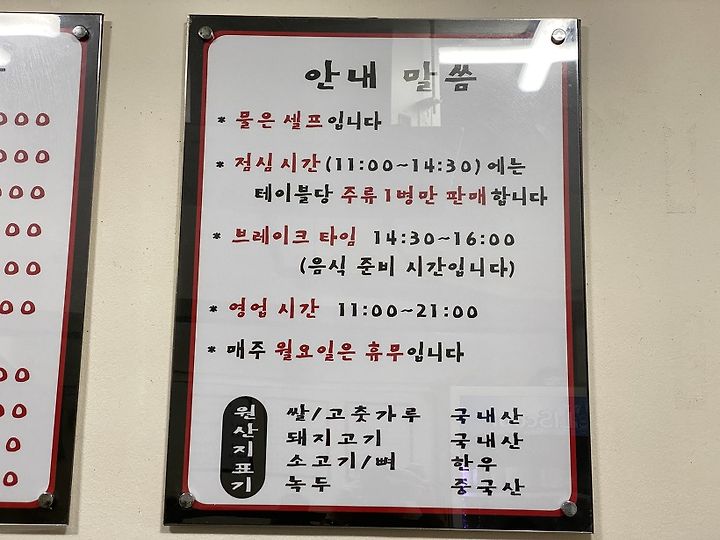 000
000
000
00
00
00
00
00
0
0
안내 말씀
* 물은 셀프입니다
* 점심시간(11:00~14:30)에는
테이블당 주류1병만 판매합니다
* 브레이크 타임 14:30~16:00
(음식 준비 시간입니다)
* 영업 시간 11:00~21:00
* 매주 월요일은 휴무입니다
원산지표기
쌀/고춧가루 국내산
돼지고기 국내산
소고기/뼈 한우
녹두 중국산